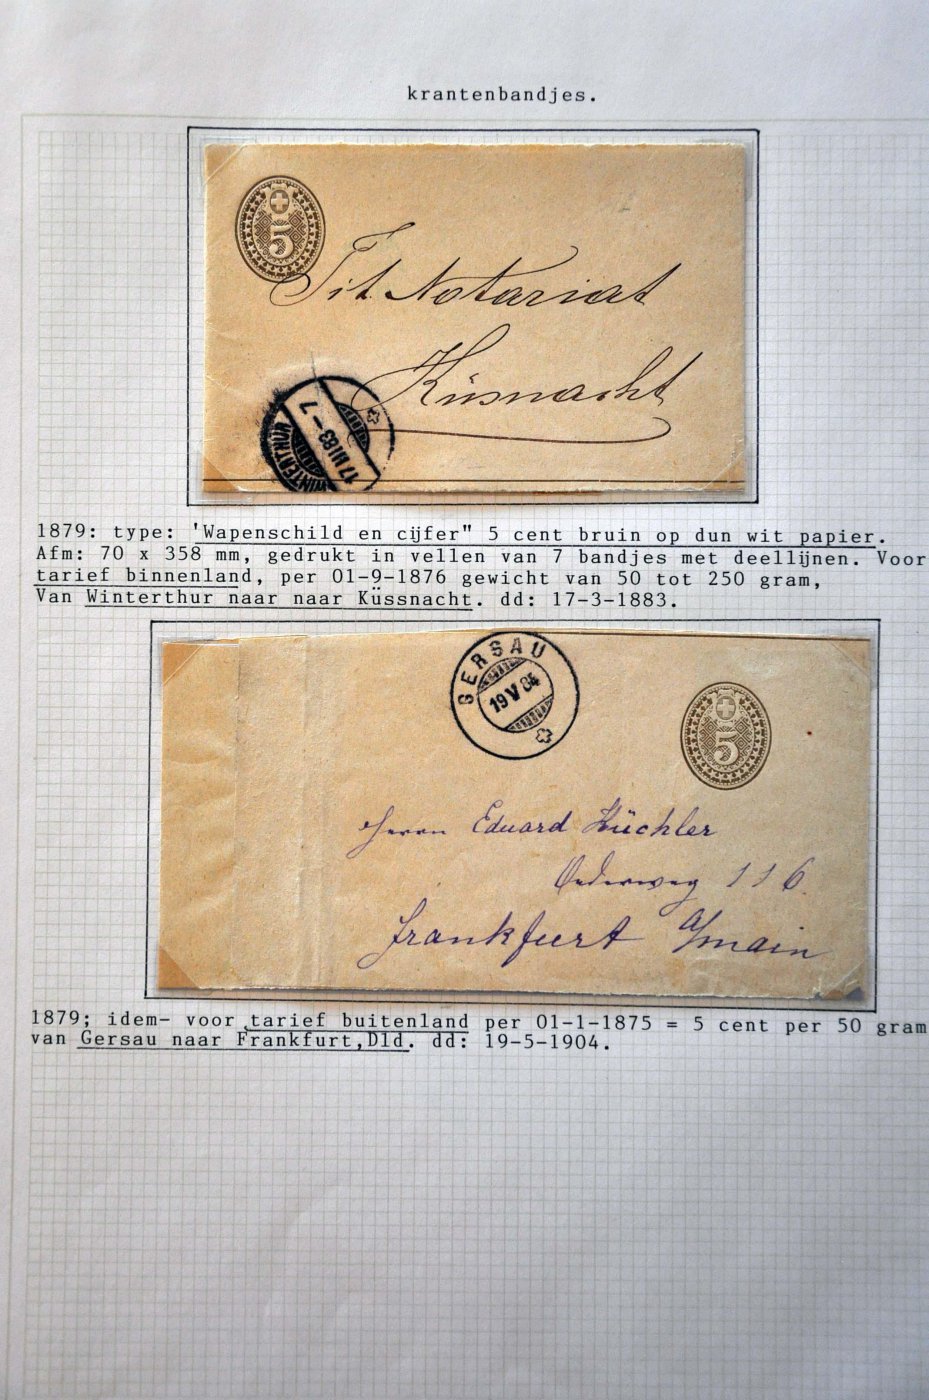 krantenbandjes.
5
Tit. Notariat
Küsnacht
WINTERTHUR
17 III 83 – 7
1879: type: 'Wapenschild en cijfer" 5 cent bruin op dun wit papier.
Afm: 70 x 358 mm, gedrukt in vellen van 7 bandjes met deellijnen. Voor
tarief binnenland, per 01-9-1876 gewicht van 50 tot 250 gram,
Van Winterthur naar naar Küssnacht. dd: 17-3-1883.
GERSAU
19 V 04
5
Herrn Eduard Küchler
Oederweg 116.
Frankfurt a/main
1879; idem- voor tarief buitenland per 01-1-1875 = 5 cent per 50 gram
van Gersau naar Frankfurt,Dld. dd: 19-5-1904.